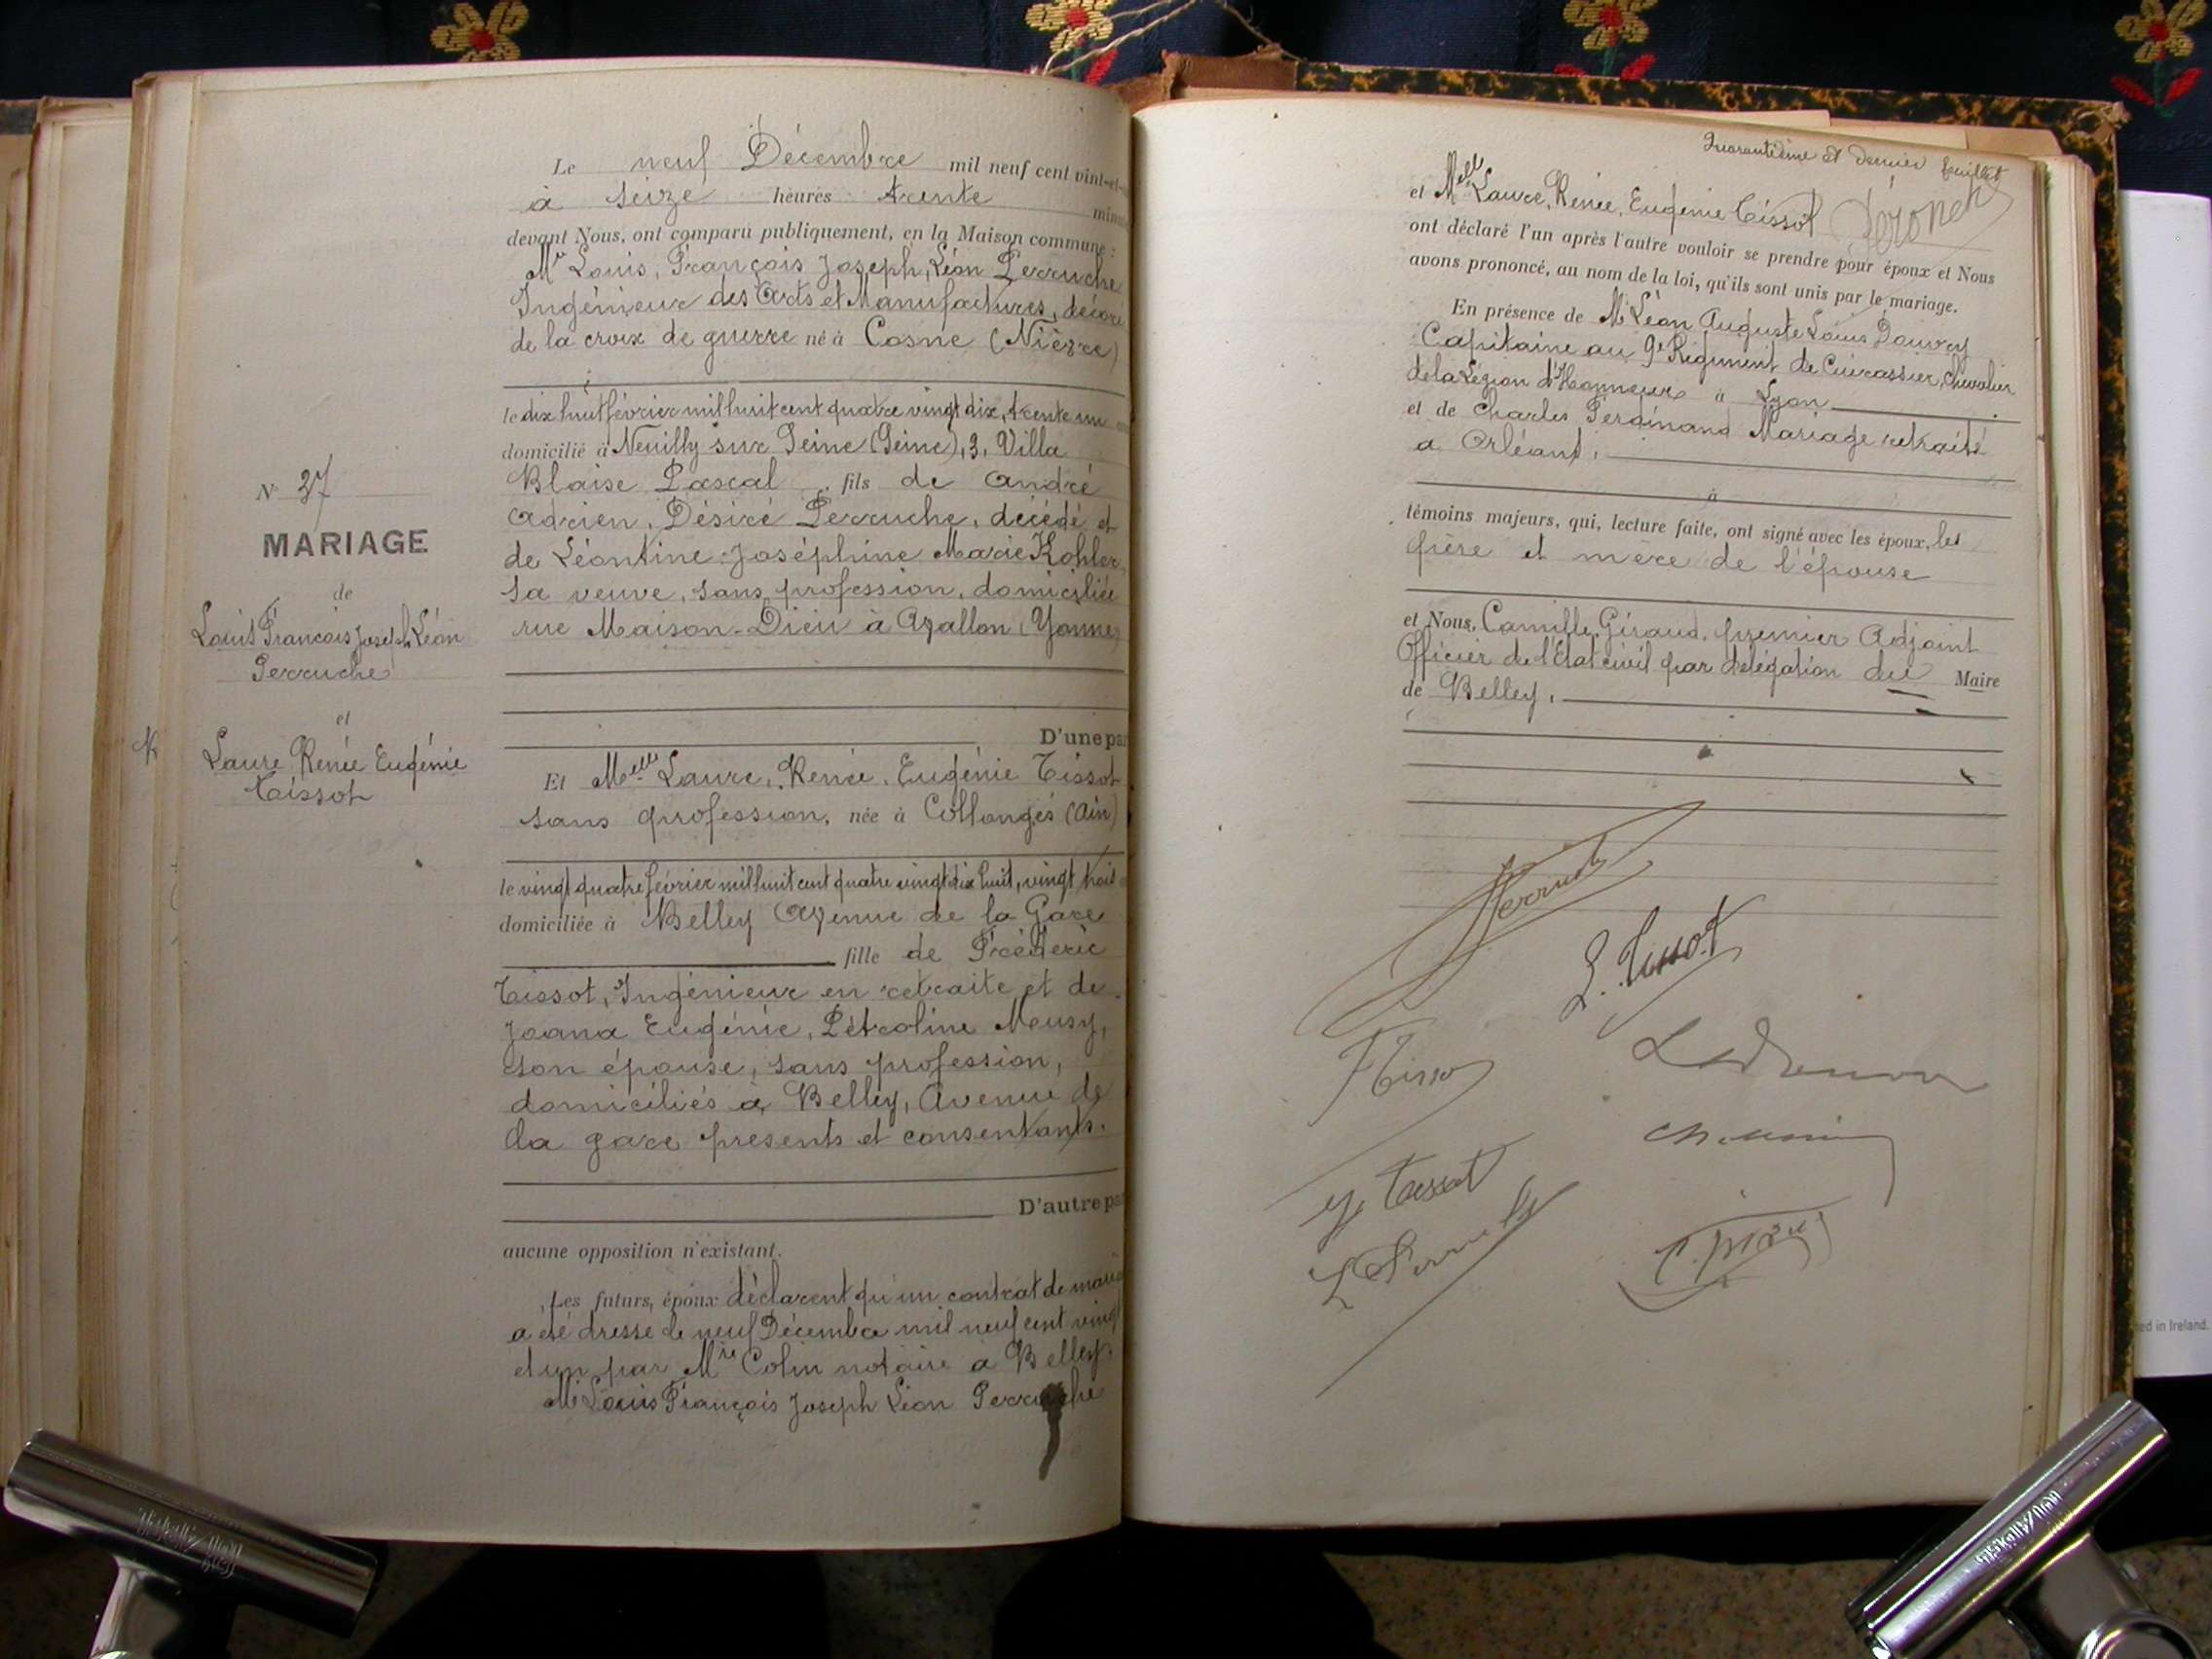 Le neuf Décembre mil neuf cent vint-et-
à seize heures trente minu
devant Nous, ont comparu publiquement, en la Maison commune :
Mr Louis, François Joseph, Léon Perruche
Ingénieur des Arts et Manufactures, décoré
de la croix de guerre né à Cosne (Nièvre)
le dix huit février mil huit cent quatre vingt dix, trente un
domicilié à Neuilly sur Seine (Seine), 3, Villa
Blaise Pascal, fils de André
Adrien, Désiré Perruche, décédé et
de Léontine Joséphine Marie Kohler,
sa veuve, sans profession, domiciliée
rue Maison-Dieu à Avallon (Yonne)
D'une par
N° 37
MARIAGE
de
Louis François Joseph Léon
Perruche
et
Laure Renée Eugénie
Tissot
Et Melle Laure, Renée, Eugénie Tissot
sans profession, née à Collonges (Ain)
le vingt quatre février mil huit cent quatre vingt dix huit, vingt trois
domiciliée à Belley Avenue de la Gare
fille de Fréderic
Tissot, Ingénieur en retraite et de
Joana Eugénie, Pétroline Meusy,
son épouse, sans profession,
domiciliés à Belley, Avenue de
la gare présents et consentants.
D'autre pa
aucune opposition n'existant.
Les futurs, époux déclarent qu'un contrat de maria
a été dressé le neuf Décembre mil neuf cent vingt
et un par Mre Colin notaire a Belley.
Mr Louis François Joseph Léon Perruche
Quarantième et dernier feuillet
et Melle Laure, Renée, Eugénie Tissot
ont déclaré l'un après l'autre vouloir se prendre pour époux et Nous
avons prononcé, au nom de la loi, qu'ils sont unis par le mariage.
En présence de Mr Léon Auguste Louis
Capitaine au 9e Régiment de Cuirassier, Chevalier
de la Légion d'Honneur à Lyon
et de Charles Ferdinand Mariage retraité
à Orléans,
à
témoins majeurs, qui, lecture faite, ont signé avec les époux, les
père et mère de l'épouse
et Nous, Camille Giraud, premier Adjoint
Officier de l'État civil par délégation du Maire
de Belley,
L. Tissot
Tissot
ed in Ireland.